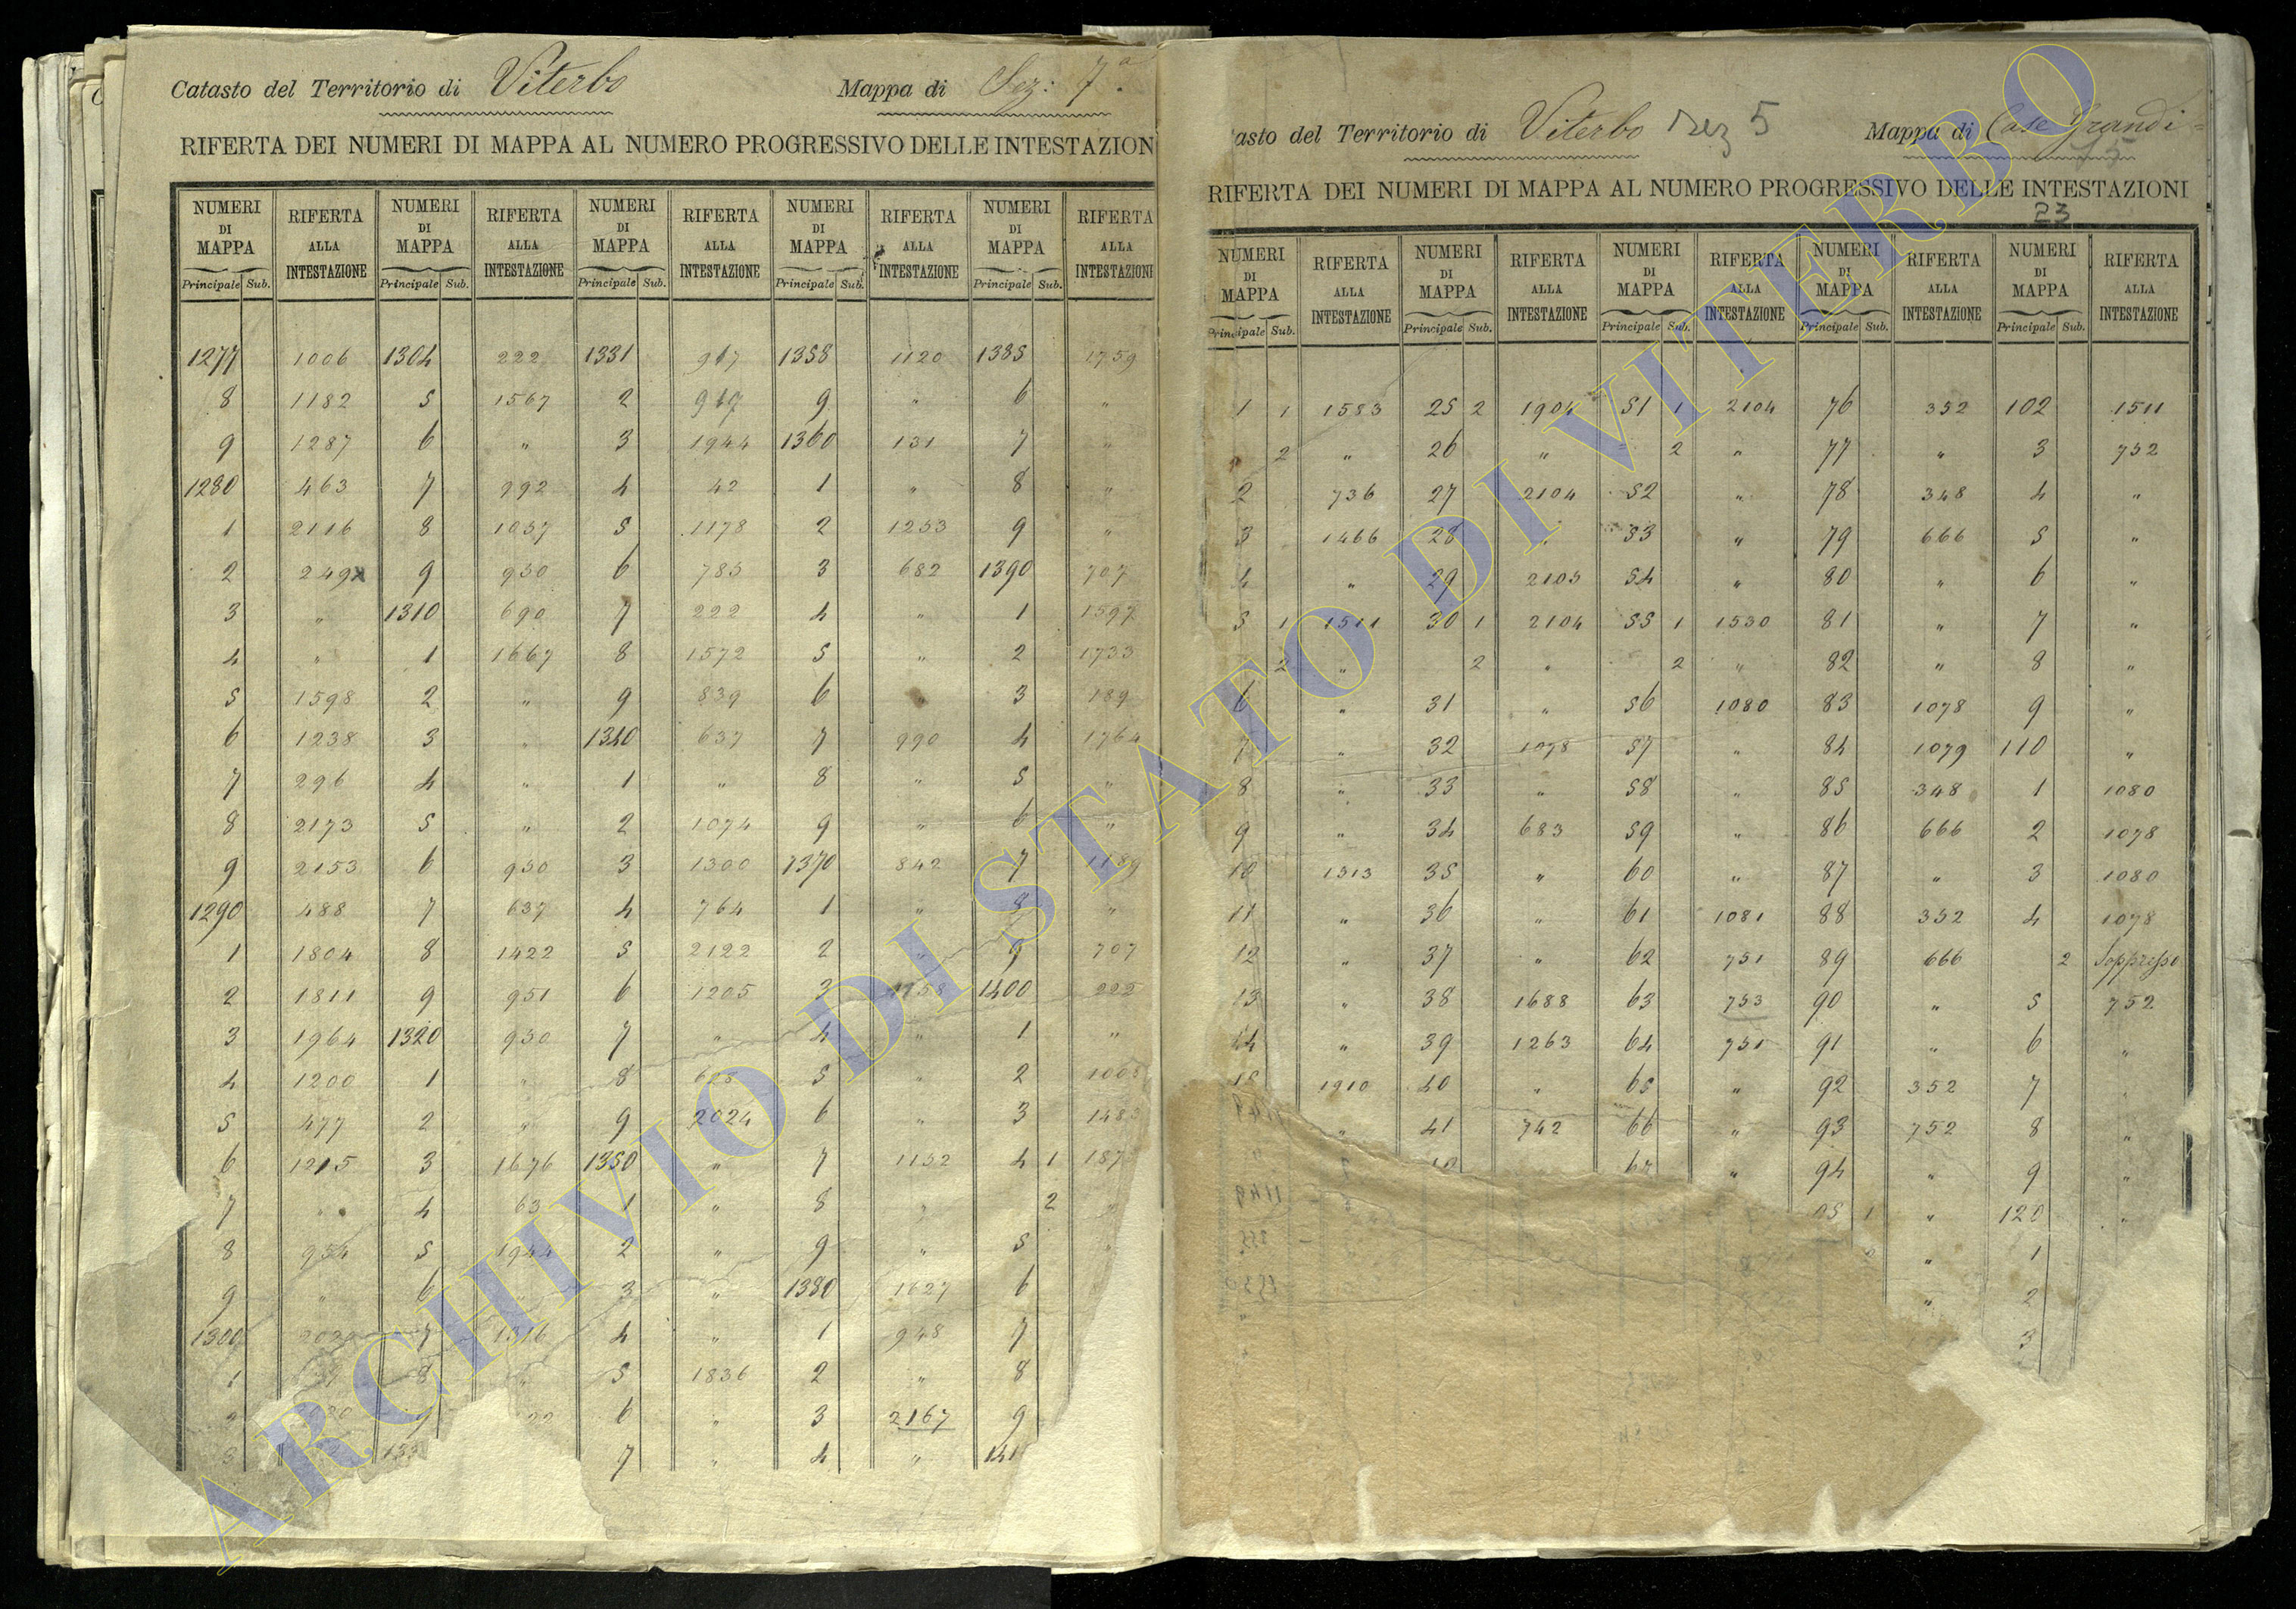 Catasto del Territorio di Viterbo Mappa di Sez: 7ª.
RIFERTA DEI NUMERI DI MAPPA AL NUMERO PROGRESSIVO DELLE INTESTAZION
NUMERI DI MAPPA RIFERTA ALLA INTESTAZIONE NUMERI DI MAPPA RIFERTA ALLA INTESTAZIONE NUMERI DI MAPPA RIFERTA ALLA INTESTAZIONE NUMERI DI MAPPA RIFERTA ALLA INTESTAZIONE NUMERI DI MAPPA RIFERTA ALLA INTESTAZIONI
Principale Sub. Principale Sub. Principale Sub. Principale Sub. Principale Sub.
1277 1006 1304 222 1331 917 1358 1120 1385 1759
8 1182 5 1567 2 917 9 " 6 "
9 1287 6 " 3 1944 1360 131 7 "
1280 463 7 992 4 42 1 " 8 "
1 2116 8 1037 5 1178 2 1253 9 "
2 249 9 950 6 785 3 682 1390 707
3 " 1310 690 7 222 4 " 1 1597
4 " 1 1667 8 1572 5 " 2 1733
5 1598 2 " 9 839 6 " 3 189
6 1238 3 " 1340 637 7 990 4 1764
7 296 4 " 1 " 8 " 5 "
8 2173 5 " 2 1074 9 " 6 "
9 2153 6 950 3 1300 1370 842 7 1189
1290 488 7 637 4 764 1 " 8 "
1 1804 8 1422 5 2122 2 " 9 707
2 1811 9 951 6 1205 3 1758 1400 222
3 1964 1320 950 7 " 4 " 1 "
4 1200 1 " 8 5 " 2
5 477 2 " 9 2024 6 " 3 1483
6 1215 3 1676 1350 " 7 1132 4 1 187
7 " 4 63 1 " 8 " 2 "
8 954 5 1944 2 " 9 " 5
9 " 6 " 3 " 1380 1627 6
1300 7 1316 4 " 1 948 7
1 8 " 5 1836 2 " 8
2 9 6 " 3 2167 9
3 133 7 " 4 " 141
asto del Territorio di Viterbo Sez 5 Mappa di Case Grandi =
75
RIFERTA DEI NUMERI DI MAPPA AL NUMERO PROGRESSIVO DELLE INTESTAZIONI
23
NUMERI DI MAPPA RIFERTA ALLA INTESTAZIONE NUMERI DI MAPPA RIFERTA ALLA INTESTAZIONE NUMERI DI MAPPA RIFERTA ALLA INTESTAZIONE NUMERI DI MAPPA RIFERTA ALLA INTESTAZIONE NUMERI DI MAPPA RIFERTA ALLA INTESTAZIONE
Principale Sub. Principale Sub. Principale Sub. Principale Sub. Principale Sub.
1 1 1583 25 2 1904 51 1 2104 76 352 102 1511
" 2 " 26 " = 2 " 77 " 3 752
2 736 27 2104 52 " 78 348 4 "
3 1466 28 " 53 " 79 666 5 "
4 " 29 2105 54 " 80 " 6 "
5 1 1511 30 1 2104 55 1 1530 81 " 7 "
2 " 2 " 2 " 82 " 8 "
6 " 31 " 56 1080 83 1078 9 "
7 " 32 1078 57 " 84 1079 110 "
8 " 33 " 58 " 85 348 1 1080
9 " 34 683 59 " 86 666 2 1078
10 1313 35 " 60 " 87 " 3 1080
11 " 36 " 61 1081 88 352 4 1078
12 " 37 " 62 751 89 666 2 Soppresso
13 " 38 1688 63 753 90 " 5 752
14 " 39 1263 64 751 91 " 6 "
15 1910 40 " 65 " 92 352 7 "
" 41 742 66 " 93 752 8 "
67 " 94 " 9 "
95 1 " 120 "
" 1
" 2
3
ARCHIVIO DI STATO DI VITERBO